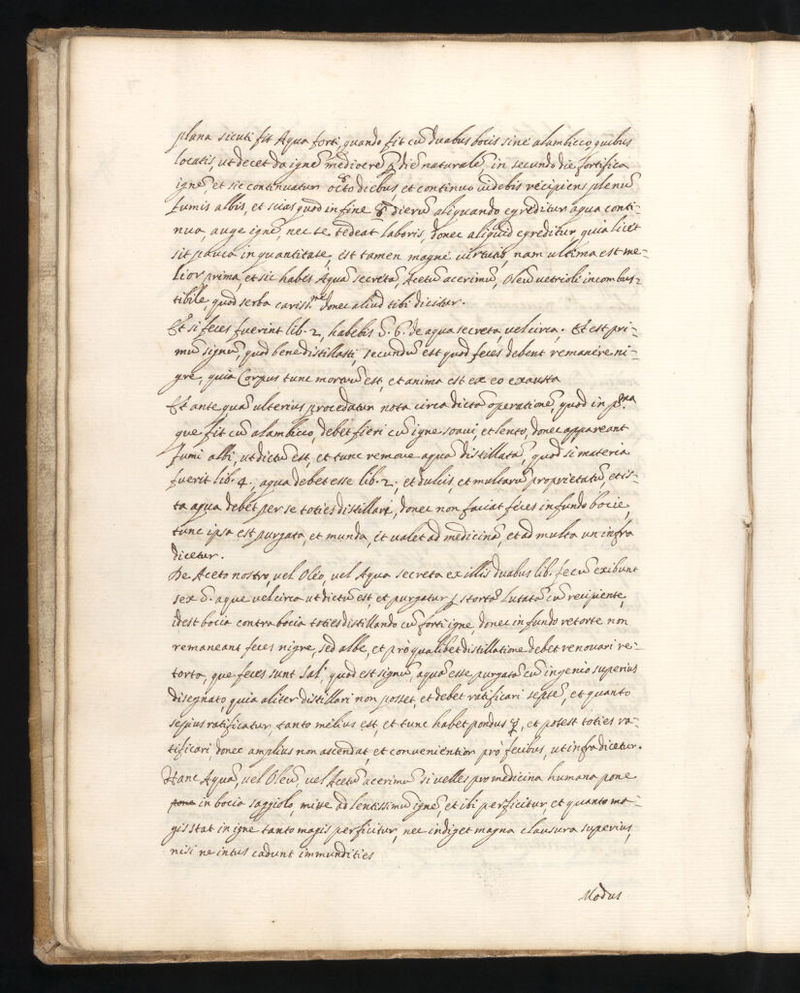 plana sicuti fit Aqua forti, quando fit cũ duabus bocis sine alambicco quibus
locatis, ut decet da ignẽ mediocrẽ p diẽ naturalẽ in secundo die fortifica
ignẽ, et sic continuatur octo diebus, et continuo uidebis recipiens plenũ
fumis albis, et scias quod in fine 8 dierũ aliquando egreditur aqua conti=
nua, auge ignẽ, nec te tedeat laboris, donec aliquid egreditur, quia licet
sit pauca in quantitate, est tamen magne uirtutis, nam ultima est me=
lior prima, et sic habes Aquã secretã, Acetũ acerimũ, Oleũ uetrioli incombus=
tibile, quod serba cariss.e donec aliud tibi dicitur.
Et si feces fuerint lib. 2, habebis 6. de aqua secreta, uel circa. Et est pri=
mũ signũ, quod bene distillasti, secundũ est quod feces debent remanere ni=
gre, quia Corpus tunc mortuũ est, et anima est ex eo exausta
Et ante quã ulterius procedatur nota circa dictã operationẽ, quod in p.ma
que fit cũ alambicco, debet fieri cũ igne soaui, et lento, donec appareant
fumi albi, ut dictũ est, et tunc remoue aquã distillatã, quod si materia
fuerit lib. 4., aqua debet esse lib. 2., et dulcis, et multarũ proprietatũ, et is=
ta aqua debet per se toties distillari, donec non faciat feces in fundo bocie,
tunc ipsa est purgata, et munda, et ualet ad medicinã, et ad multa ut infra
dicetur.
De Aceto nostro, uel Oleo, uel Aqua secreta ex illis duabus lib. fecũ exibunt
sex aque uel circa ut dictũ est, et purgatur p stortã lutatã cũ recipiente,
idest bocia contra bocia toties distillando cũ forti igne, donec in fundo retorte non
remaneant feces nigre, sed albe, et pro qualibet distillatione debet renouari re=
torta, que feces sunt Sal, quod est signũ, aquã esse purgatã cũ ingenio superius
disegnato, quia aliter distillari non posset, et debet ratificari septẽ, et quanto
sepius ratificatur, tanto melius est, et tunc habet pondus, et potest toties ra=
tificari donec amplius non ascendat, et conuenientior pro fecibus, ut infra dicetur.
Hanc Aquã, uel Oleũ, uel Acetũ acerimũ si uelles pro medicina humana pone
pone in bocia saggiolo, mitte ad lentissimũ ignẽ et ibi perficitur, et quanto ma=
gis stat in igne tanto magis perficitur, nec indiget magna clausura superius,
nisi ne intus cadunt immundities
Modus